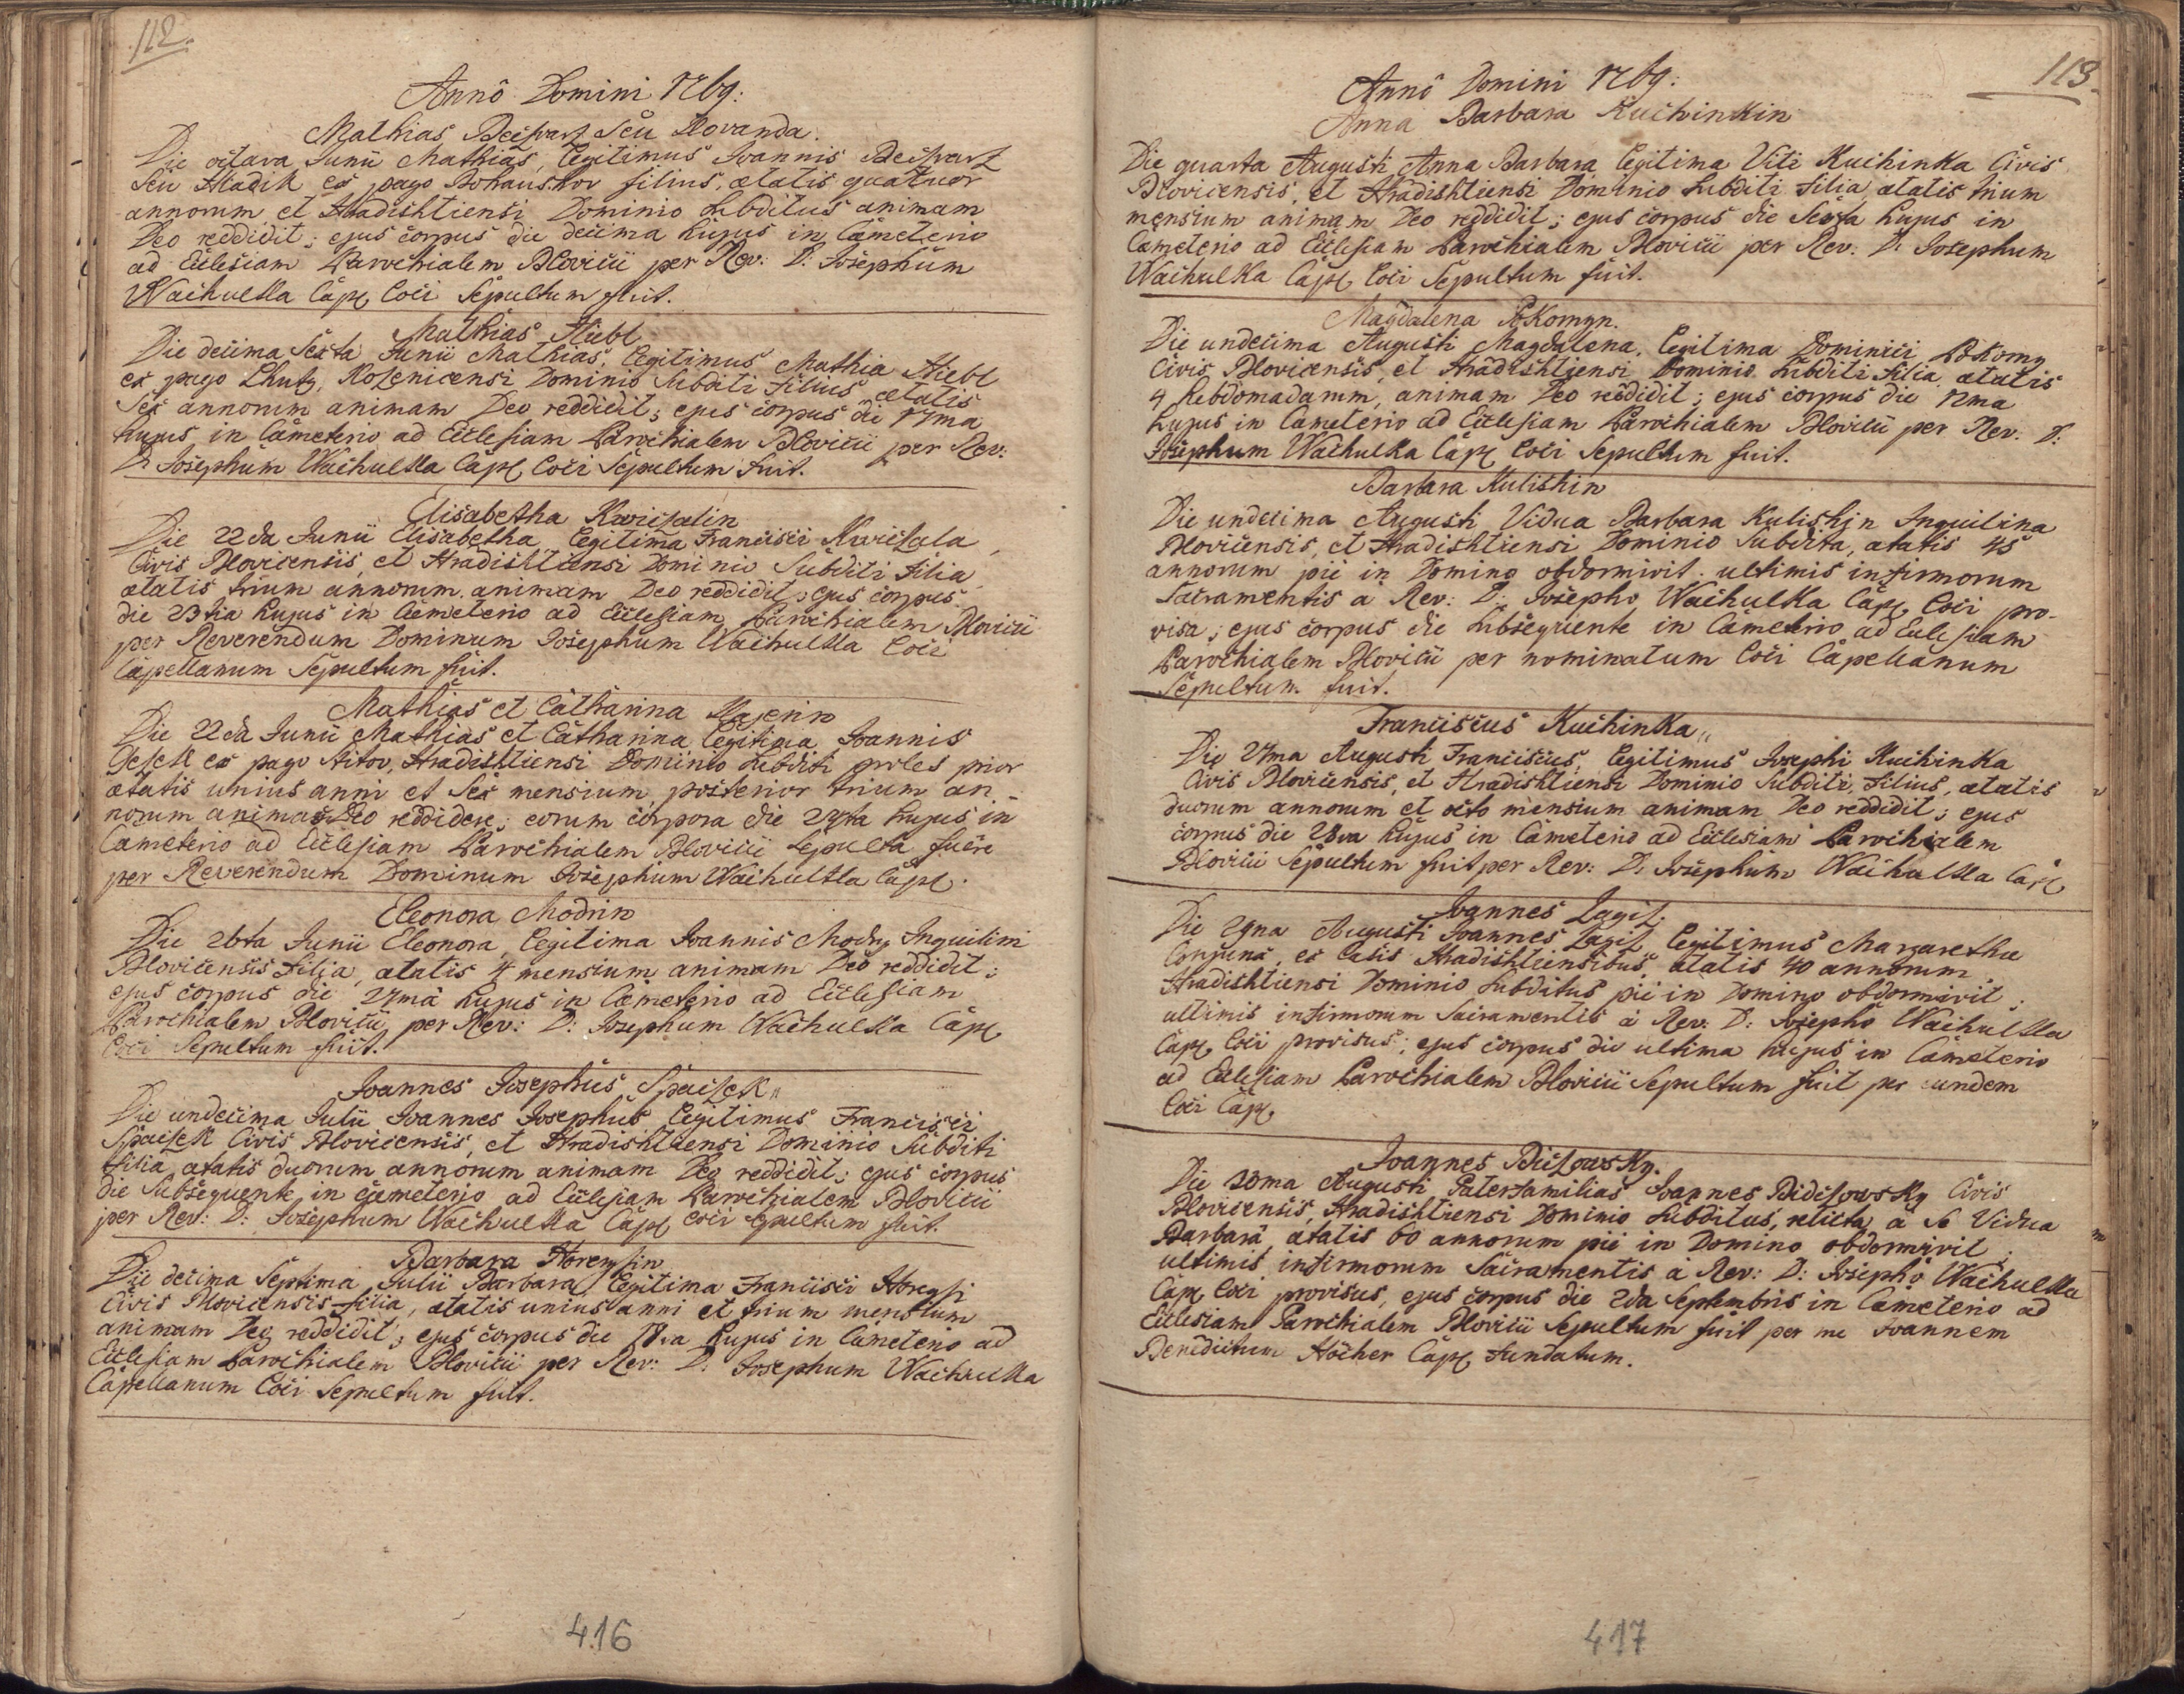 112.
Annô Domini 1769:
Mathias Beczwarz Seu Howanda.
Die octava Junii Mathias, legitimus Joannis Beczwarz
Seu Hladik ex pago Bohaushov filius, ætatis quatuor
annorum et Hradishtiensi Dominio Subditus animam
Deo reddidit; ejus corpus die decima hujus in Cæmeterio
ad Ecclesiam Parochialem Blovicii per Rev: D: Josephum
Wachulka Capel: loci Sepultum fuit.
Mathias Hiebl
Die decima Sexta Junii Mathias, legitimus Mathiæ Hiebl
ex pago Lhuty, Kozenicensi Dominio Subditi filius ætatis
Sex annorum animam Deo reddidit; ejus corpus die 17ma
hujus in Cæmeterio ad Ecclesiam Parochialem Blovicii per Rev:
D: Josephum Wachulka Capel: loci Sepultum fuit.
Elisabetha Kwiczalin
Die 22da Junii Elisabetha, legitima Francisci Kwiczala
Civis Blovicensis, et Hradishtiensi Dominio Subditi filia
ætatis trium annorum animam Deo reddidit; ejus corpus
die 23tia hujus in Cæmeterio ad Ecclesiam Parochialem Blovicii
per Reverendum Dominum Josephum Wachulka loci
Capellanum Sepultum fuit.
Mathias et Catharina
Die 22da Junii Mathias et Catharina legitima Joannis
ex pago Stitov, Hradishtiensi Dominio Subditi proles prior
ætatis unius anni et Sex mensium, posterior trium an-
norum animas Deo reddidere; eorum corpora die 24ta hujus in
Cæmeterio ad Ecclesiam Parochialem Blovicii Sepulta fuere
per Reverendum Dominum Josephum Wachulka Capel:
Eleonora Modrin
Die 26ta Junii Eleonora, legitima Joannis Modry Inquilini
Blovicensis filia, ætatis 4 mensium animam Deo reddidit;
ejus corpus die 27mâ hujus in Cæmeterio ad Ecclesiam
Parochialem Blovicii, per Rev: D: Josephum Wachulka Capel:
loci Sepultum fuit.
Joannes Josephus Spaczek
Die undecima Julii Joannes Josephus legitimus Francisci
Spaczek Civis Blovicensis, et Hradishtiensi Dominio Subditi
filia ætatis duorum annorum animam Deo reddidit; ejus corpus
die Subsequente in Cæmeterio ad Ecclesiam Parochialem Blovicii
per Rev: D: Josephum Wachulka Capel: loci Sepultum fuit.
Barbara Horensin
Die decima Septima Julii Barbara, legitima Francisci Horensi
Civis Blovicensis filia, ætatis unius anni et trium mensium
animam Deo reddidit; ejus corpus die 18va hujus in Cæmeterio ad
Ecclesiam Parochialem Blovicii per Rev: D: Josephum Wachulka
Capellanum loci Sepultum fuit.
416
113.
Annô Domini 1769:
Anna Barbara Kuchinkin
Die quarta Augusti Anna Barbara legitima Viti Kuchinka Civis
Blovicensis, et Hradishtiensi Dominio Subditi filia, ætatis trium
mensium animam Deo reddidit; ejus corpus die Sexta hujus in
Cæmeterio ad Ecclesiam Parochialem Blovicii per Rev: D: Josephum
Wachulka Capel: loci Sepultum fuit.
Magdalena Pokornyn.
Die undecima Augusti Magdalena, legitima Dominici Pokorny
Civis Blovicensis, et Hradishtiensi Dominio Subditi filia, ætatis
4 hebdomadarum, animam Deo reddidit; ejus corpus die 12ma
hujus in Cæmeterio ad Ecclesiam Parochialem Blovicii per Rev: D:
Josephum Wachulka Capel: loci Sepultum fuit.
Barbara Kulishin
Die undecima Augusti Vidua Barbara Kulishin Inquilina
Blovicensis, et Hradishtiensi Dominio Subdita, ætatis 45
annorum pié in Domino obdormivit ultimis infirmorum
Sacramentis á Rev: D: Josepho Wachulka Capel: loci pro-
visa; ejus corpus die Subsequente in Cæmeterio ad Ecclesiam
Parochialem Blovicii per nominatum loci Capellanum
Sepultum fuit.
Franciscus Kuchinka
Die 27ma Augusti Franciscus, legitimus Josephi Kuchinka
Civis Blovicensis, et Hradishtiensi Dominio Subditi, filius, ætatis
duorum annorum et octo mensium animam Deo reddidit; ejus
corpus die 28va hujus in Cæmeterio ad Ecclesiam Parochialem
Blovicii Sepultum fuit per Rev: D: Josephum Wachulka Capel:
Joannes Zagiz.
Die 29na Augusti Joannes Zagiz legitimus Margarethæ
Conjunx, ex Casis Hradishtiensibus, ætatis 40 annorum
Hradishtiensi Dominio Subditus pié in Domino obdormivit;
ultimis infirmorum Sacramentis á Rev: D: Josepho Wachulka
Capel: loci provisus; ejus corpus die ultima hujus in Cæmeterio
ad Ecclesiam Parochialem Blovicii Sepultum fuit per eundem
loci Capel:
Joannes Biczowsky.
Die 30ma Augusti Paterfamilias Joannes Bidczowsky Civis
Blovicensis, Hradishtiensi Dominio Subditus, relicta á Se Vidua
Barbarâ ætatis 60 annorum pié in Domino obdormivit;
ultimis infirmorum Sacramentis á Rev: D: Josepho Wachulka
Capel: loci provisus, ejus corpus die 2da Septembris in Cæmeterio ad
Ecclesiam Parochialem Blovicii Sepultum fuit per me Joannem
Benedictum Höcher Capel: Fundatum.
417